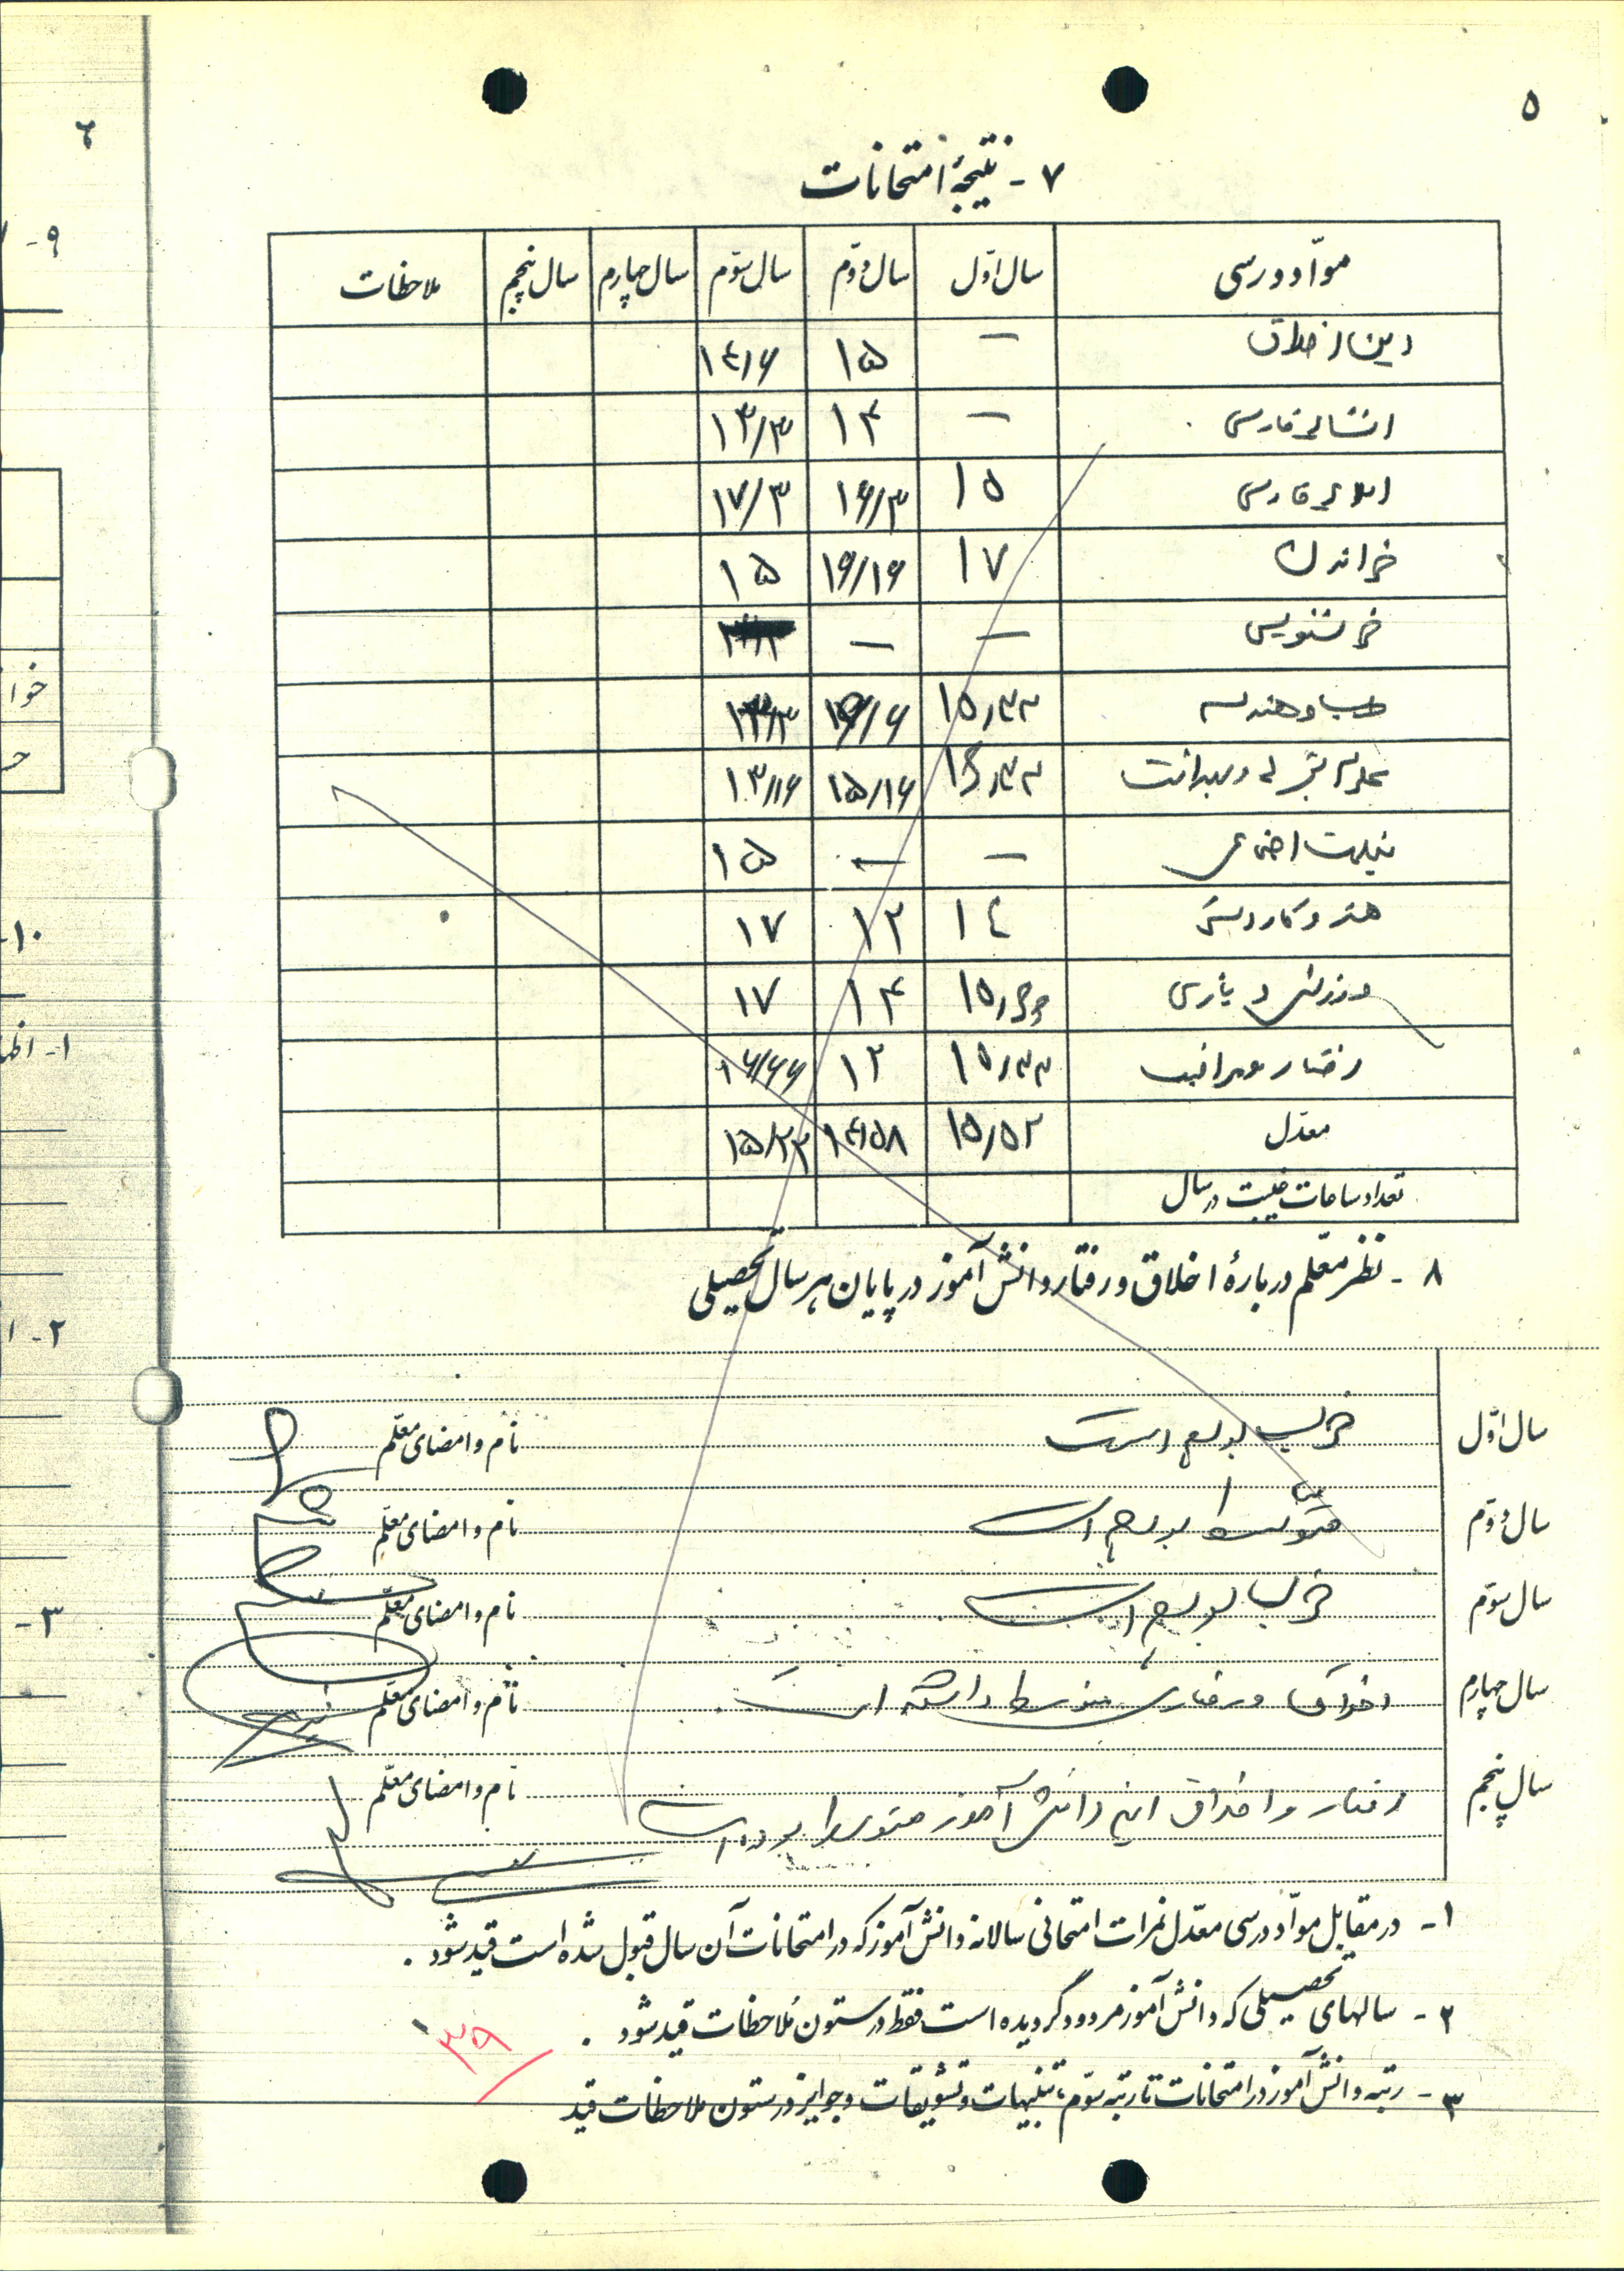 ۵
۷ - نتیجهٔ امتحانات
موادّ درسی سال اوّل سال دوّم سال سوّم سال چهارم سال پنجم ملاحظات
دینی اخلاق — ۱۵ ۱۴/۶
انشای فارسی — ۱۴ ۱۳/۳
املای فارسی ۱۵ ۱۶/۳ ۱۷/۳
خواندن ۱۷ ۱۶/۱۶ ۱۵
خوشنویسی — —
حساب و هندسه ۱۵٫۳۳
علم اشیاء و بهداشت ۱۵/۱۶ ۱۳/۱۶
تعلیمات اجتماعی — — ۱۵
هنر و کاردستی ۱۴ ۱۲ ۱۷
ورزش و بازی ۱۵٫۶۶ ۱۴ ۱۷
رفتار و مراقبت ۱۵٫۳۳ ۱۲ ۱۶/۶۶
معدّل ۱۵٫۵۲ ۱۴/۵۸ ۱۵/۲۳
تعداد ساعات غیبت در سال
۸ - نظر معلّم دربارهٔ اخلاق و رفتار دانش آموز در پایان هر سال تحصیلی
سال اوّل خوب بوده است نام و امضای معلّم
سال دوّم متوسط بوده است نام و امضای معلّم
سال سوّم خوب بوده است نام و امضای معلّم
سال چهارم اخلاق و رفتاری متوسط داشته است نام و امضای معلّم
سال پنجم رفتار و اخلاق این دانش آموز متوسط بوده است نام و امضای معلّم
۱- در مقابل موادّ درسی معدّل نمرات امتحانی سالانه دانش آموز که در امتحانات آن سال قبول شده است قید شود .
۲- سالهای تحصیلی که دانش آموز مردود گردیده است فقط در ستون ملاحظات قید شود .
۳- رتبه دانش آموز در امتحانات تا رتبه سوّم ، تنبیهات و تشویقات و جوایز در ستون ملاحظات قید
۳۹
۶
۹-
خوا
۱۰-
۱-
۲-
۳-